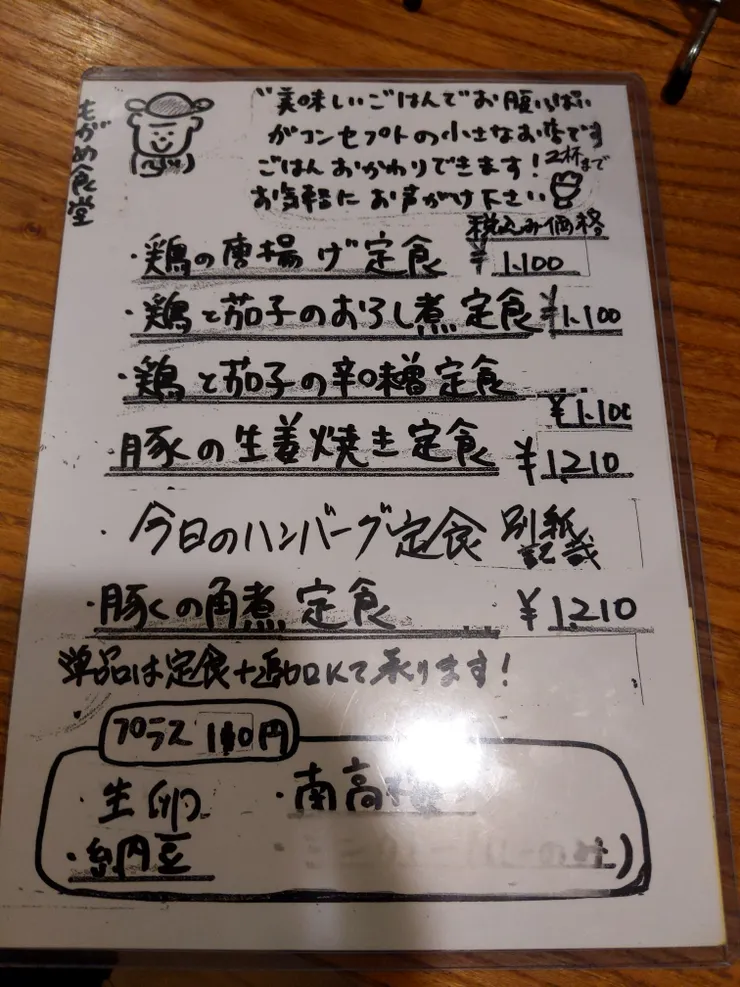 もがめ食堂
"美味しいごはんでお腹いっぱい
がコンセプトの小さなお店です
ごはんおかわりできます!2杯まで
お気軽にお声がけ下さい
税込み価格
・鶏の唐揚げ定食 ¥1.100
・鶏と茄子のおろし煮定食 ¥1.100
・鶏と茄子の辛味噌定食
¥1.100
・豚の生姜焼き定食 ¥1210
・今日のハンバーグ定食 別紙記載
・豚くの角煮定食 ¥1.210
単品は定食+追加にて承ります!
プラス110円
・生卵 ・南高梅
・納豆